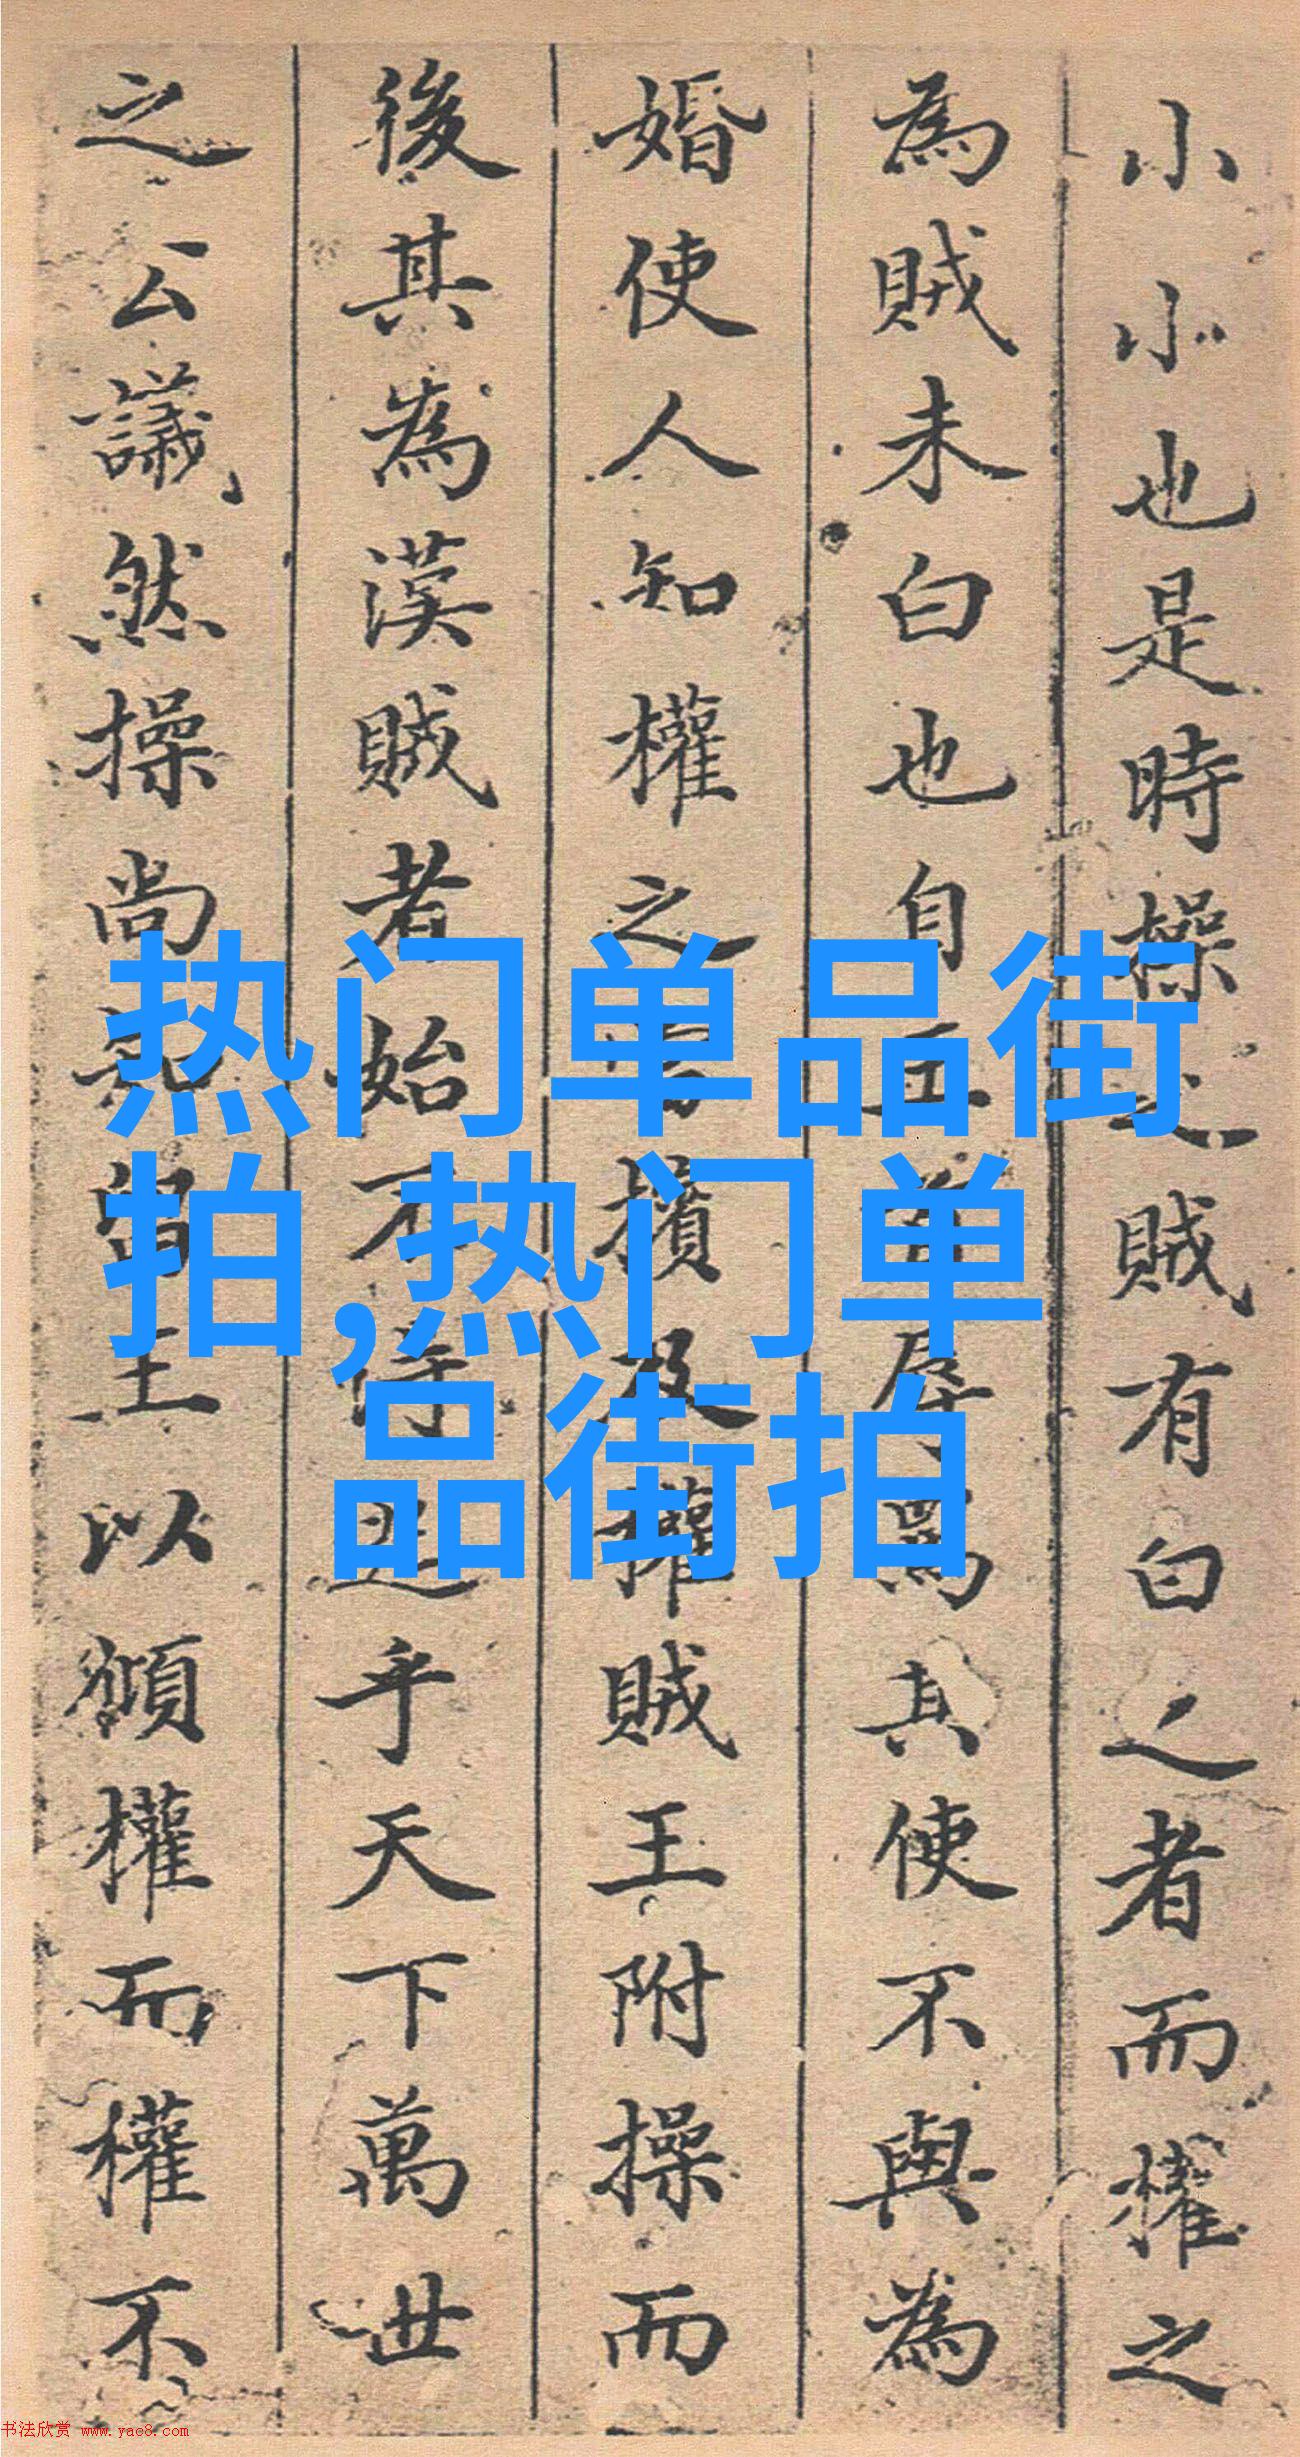 小小也是時操之賊有白之者而權之
為賊未白也自辱罵其使不與為
婚使人知權之擯及權賊王附操而
後其為漢賊者始不待乎天下萬世
之公議然操尚王以權而權不
热门单品街
拍,热门单
品街拍
书法欣赏 www.yac8.com